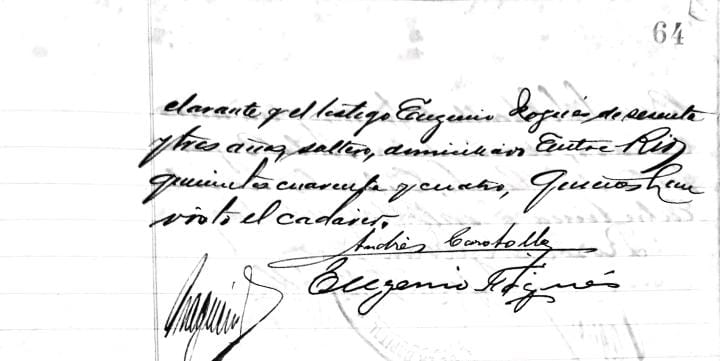 64
clarante y el testigo Eugenio Rogués de sesenta
y tres años, soltero, domiciliado Entre Rios
quinientos cuarenta y cuatro, quienes han
visto el cadáver.
Andrés
Eugenio Rogués